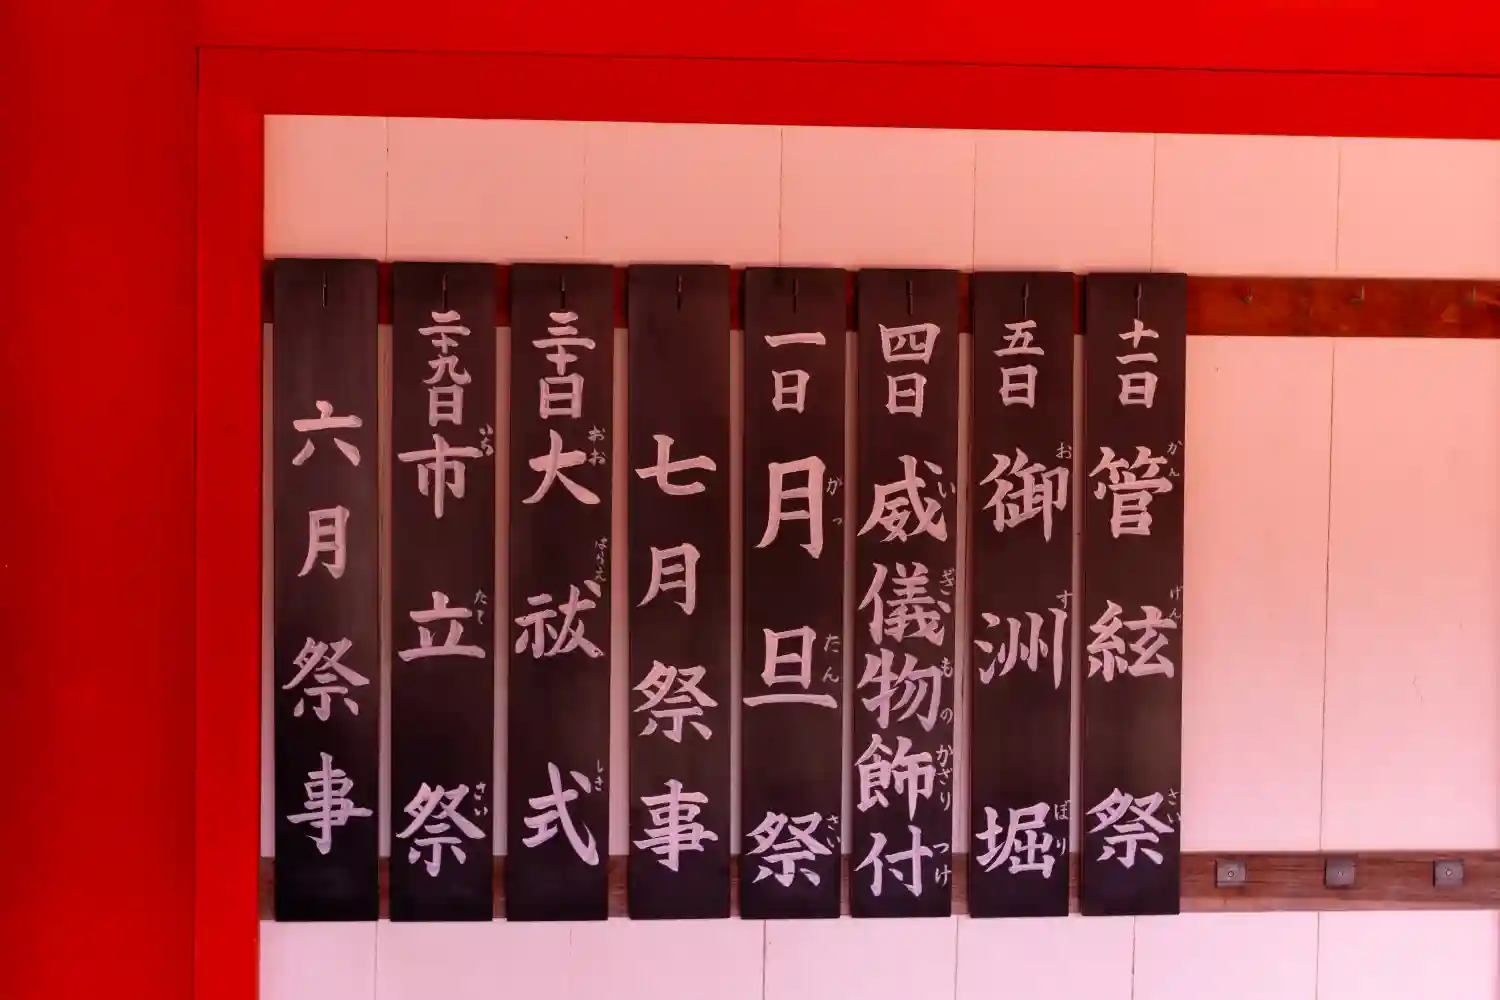 六月祭事
二十九日 市立祭
いち たて さい
三十日 大祓式
おお はらえ しき
七月祭事
一日 月旦祭
がっ たん さい
四日 威儀物飾付
い ぎ もの かざり つけ
五日 御洲堀
お す ぼり
十一日 管絃祭
かん げん さい